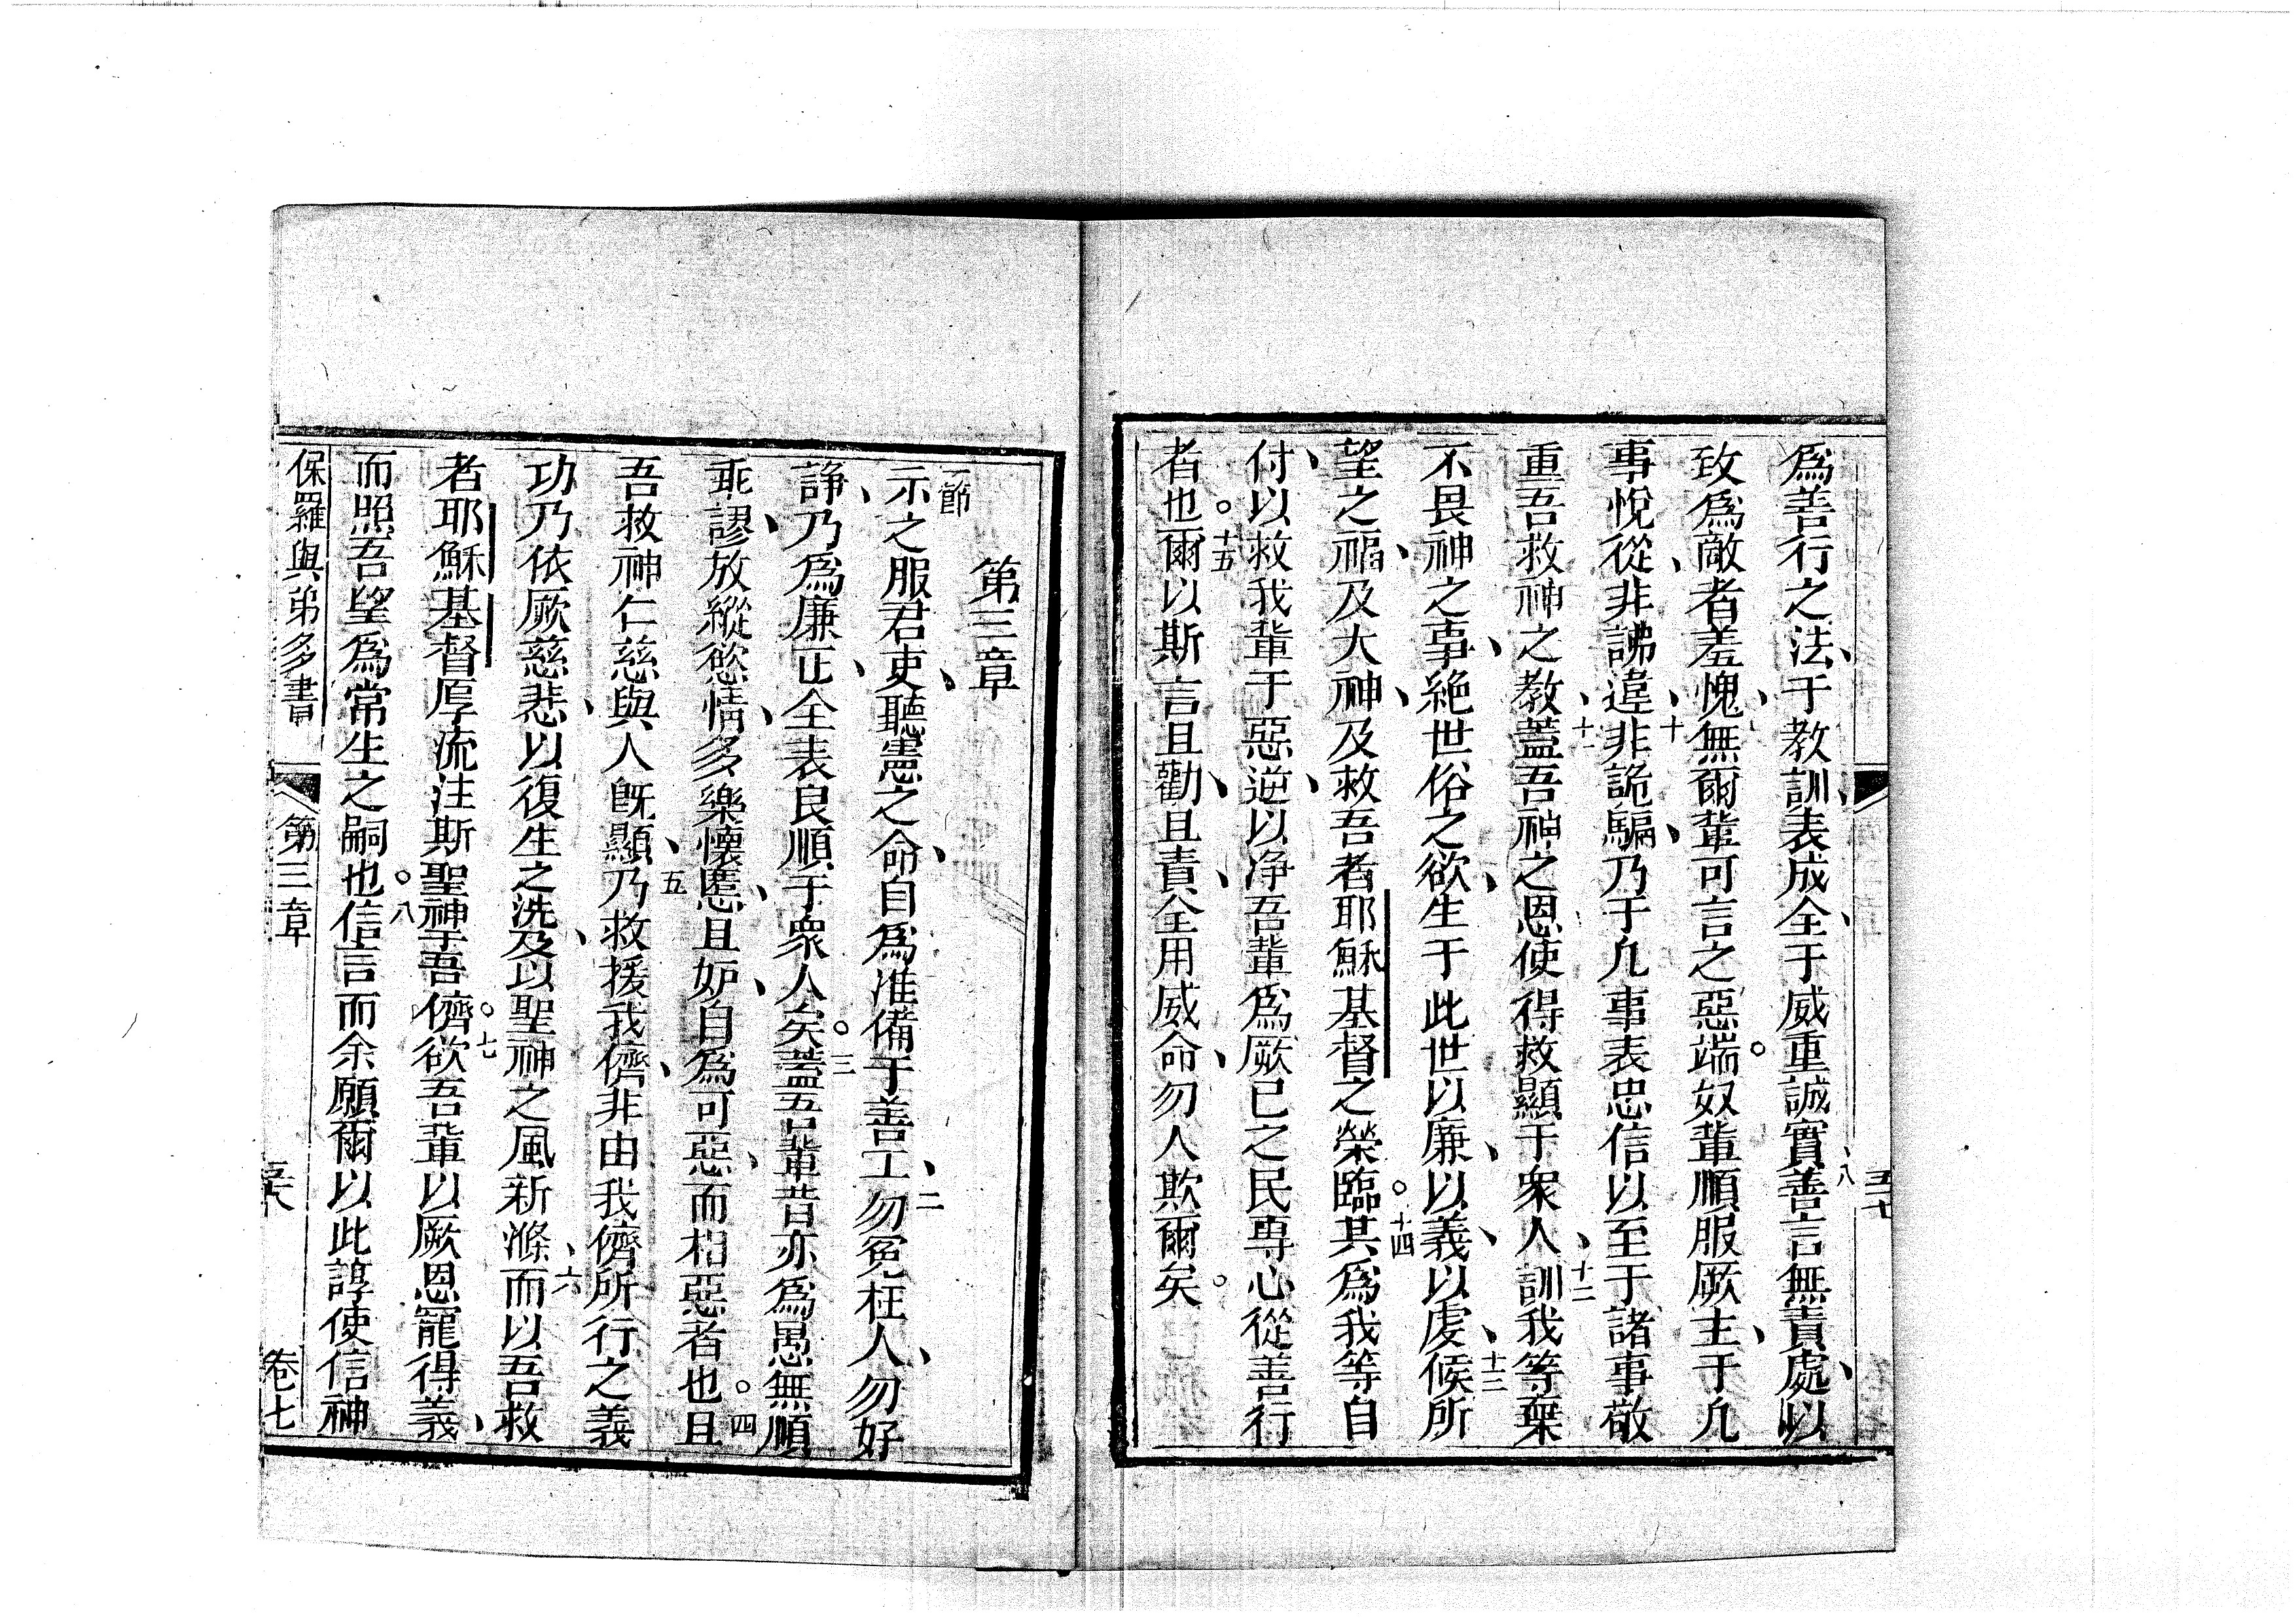 爲善行之法、于教訓、表成全、于威重誠實、八善言無責處、以
致爲敵者羞愧、無爾輩可言之惡端。奴輩順服厥主、于凢
事悅從、非誶違、十非詭騙、乃于凢事表忠信、以至于諸事敬
重吾救神之教、十一蓋吾神之恩使得救、顯于衆人、十二訓我等棄
不畏神之事、絶世俗之欲、生于此世以廉、以義、以虔、十三候所
望之福、及大神、及救吾者耶穌基督之榮臨。十四其爲我等自
付、以救我輩于惡逆、以净吾輩爲厥已之民專心從善行
者也。十五爾以斯言且勸、且責、全用威命、勿人欺爾矣。
五七
第三章
一節示之服君吏、聽憲之命、自爲准備于善工、二勿冤枉人、勿好
諍、乃爲廉正、全表良順于衆人矣。三蓋吾輩昔亦爲愚無順
乖謬、放縱慾情、多樂懷慝、且妒、自爲可惡、而相惡者也。四且
吾救神仁慈與人旣顯、五乃救援我儕、非由我儕所行之義
功、乃依厥慈悲、以復生之洗、及以聖神之風新滌、六而以吾救
者耶穌基督厚流注斯聖神于吾儕。七欲吾輩以厥恩寵得義、
而照吾望爲常生之嗣也。八信言而余願爾以此諄使信神
保羅與弟多書 第三章 五八 卷七